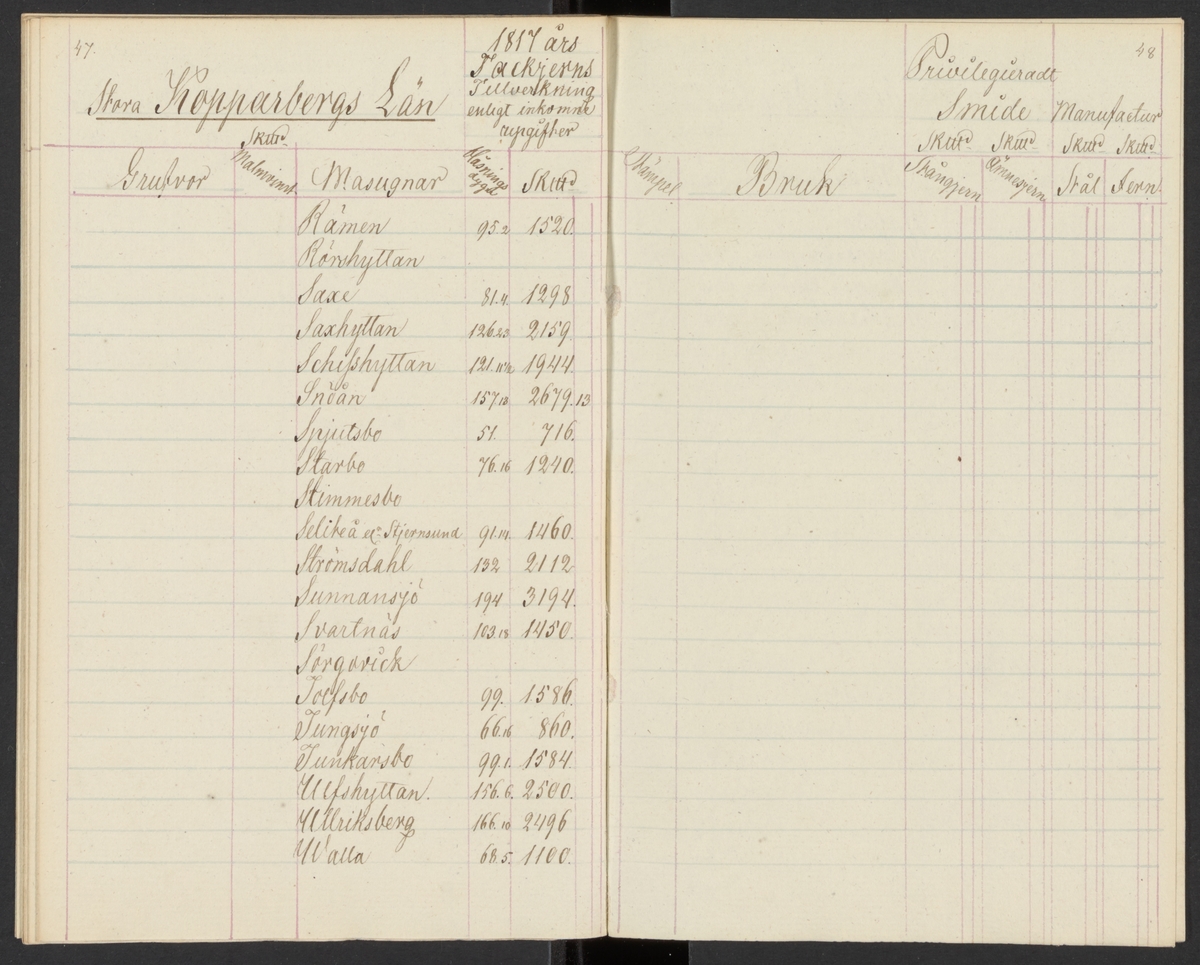 47.
Stora Kopparbergs Län
1817 års
Tackjerns
Tillverkning
enligt inkomne
uppgifter
Skttd
Grufvor Malmvinst Masugnar Blåsnings dygd Skttd
Rämen 95.2 1520.
Rörshyttan
Saxe 81.4. 1298
Saxhyttan 126.23 2159.
Schisshyttan 121.11½ 1944.
Snöån 157.13 2679.13
Spjutsbo 51. 716.
Starbo 76.16 1240.
Stimmesbo
Seliteå eł Stjernsund 91.14. 1460.
Strömsdahl 132 2112
Sunnansjö 194 3194.
Svartnäs 103.18 1450.
Sörgovick
Tolfsbo 99. 1586.
Tungsjö 66.16 860.
Tunkarsbo 99.1. 1584.
Ulfshyttan. 156.6. 2500.
Ullriksberg 166.10 2496
Walla 68.5. 1100.
48
Privilegieradt
Smide Manufactur
Skttd Skttd Skttd Skttd
Stämpel Bruk Stångjern Ämnesjern Stål Jern